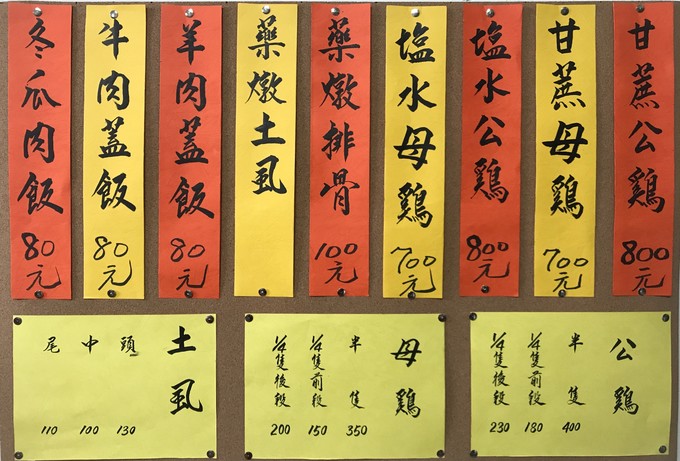 甘蔗公鷄 800元
甘蔗母鷄 700元
塩水公鷄 800元
塩水母鷄 700元
藥燉排骨 100元
藥燉土虱
羊肉蓋飯 80元
牛肉蓋飯 80元
冬瓜肉飯 80元
土虱
頭 130
中 100
尾 110
母鷄
半隻 350
1/4隻前段 150
1/4隻後段 200
公鷄
半隻 400
1/4隻前段 180
1/4隻後段 230